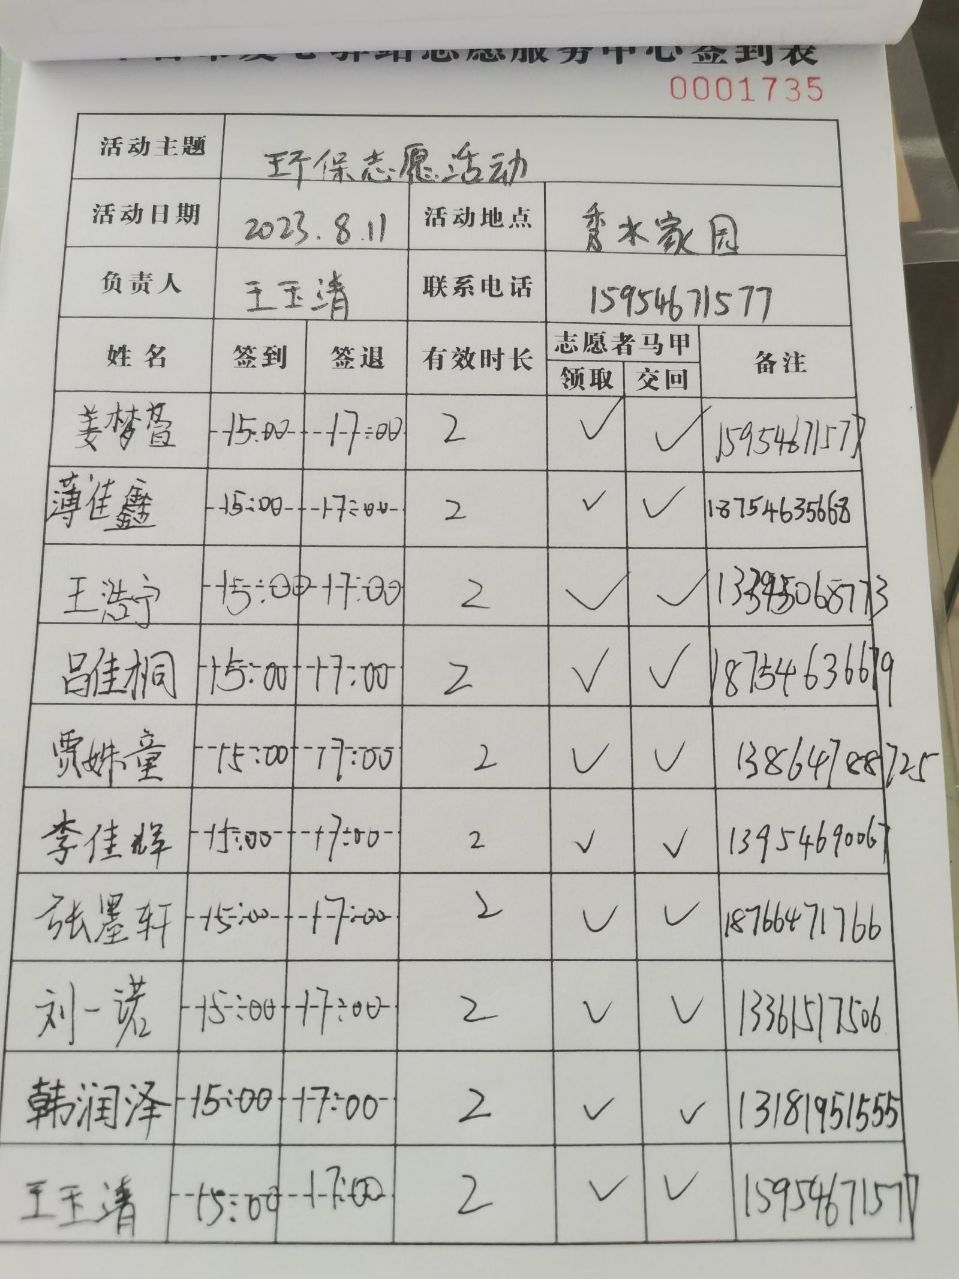 志愿服务中心签到表
0001735
活动主题 环保志愿活动
活动日期 2023.8.11 活动地点 香水家园
负责人 王玉清 联系电话 15954671577
姓名 签到 签退 有效时长 志愿者马甲 备注
领取 交回
姜梦萱 15:00 17:00 2 ✓ ✓ 15954671577
薄佳鑫 15:00 17:00 2 ✓ ✓ 18754635668
王浩宁 15:00 17:00 2 ✓ ✓
吕佳桐 15:00 17:00 2 ✓ ✓ 18754636679
贾姝童 15:00 17:00 2 ✓ ✓ 13864788725
李佳辉 15:00 17:00 2 ✓ ✓ 13954690067
张墨轩 15:00 17:00 2 ✓ ✓ 18766471766
刘一诺 15:00 17:00 2 ✓ ✓ 13361517506
韩润泽 15:00 17:00 2 ✓ ✓ 13181951555
王玉清 15:00 17:00 2 ✓ ✓ 15954671577